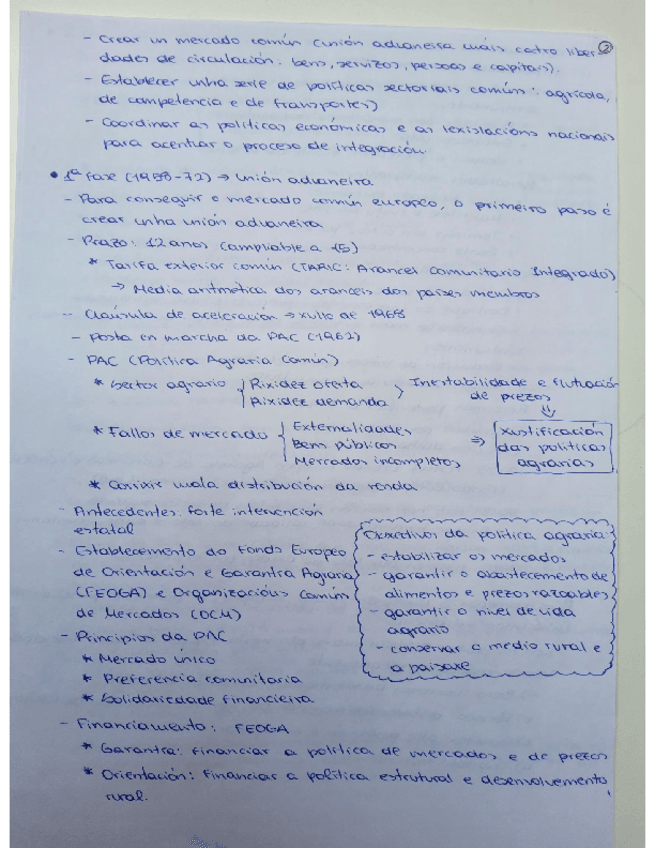 ②
- Crear un mercado común (unión aduaneira máis catro liber
dades de circulación: bens, servizos, persoas e capitais).
- Establecer unha serie de políticas sectoriais común: agrícola,
de competencia e de transportes)
- Coordinar as políticas económicas e as lexislacións nacionais
para acentuar o proceso de integración.
• 1ª fase (1958-72) → Unión aduaneira
- Para conseguir o mercado común europeo, o primeiro paso é
crear unha unión aduaneira
- Prazo: 12 anos (ampliable a 15)
* Tarifa exterior común (TARIC: Arancel Comunitario Integrado)
→ Media aritmética dos aranceis dos países membros
- Cláusula de aceleración → xullo de 1968
- Posta en marcha da PAC (1962)
- PAC (Política Agraria Común)
* Sector agrario { Rixidez oferta
Rixidez demanda } Inestabilidade e flutuación
de prezos
⇓
* Fallos de mercado { Externalidades
Bens públicos
Mercados incompletos ⇒ Xustificación
das políticas
agrarias
* Corrixir mala distribución da renda
- Antecedentes: forte intervención
estatal
- Establecemento do Fondo Europeo
de Orientación e Garantía Agraria
(FEOGA) e Organizacións Común
de Mercados (OCM)
- Principios da PAC
* Mercado único
* Preferencia comunitaria
* Solidariedade financieira
Obxectivos da política agraria:
- estabilizar os mercados
- garantir o abastecemento de
alimentos e prezos razoables
- garantir o nivel de vida
agrario
- conservar o medio rural e
a paisaxe
- Financiamento: FEOGA
* Garantía: financiar a política de mercados e de prezos
* Orientación: financiar a política estrutural e desenvolvemento
rural.